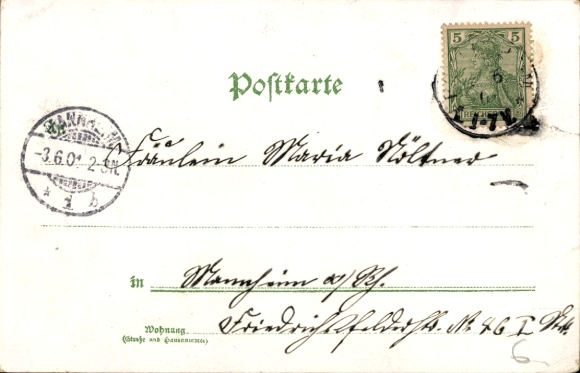 5
Postkarte
MANNHEIM
3.6.01. 2-3N.
* 1 b
Fräulein Maria Nöltner
in Mannheim a/Rh.
Wohnung
(Straße und Hausnummer)
Friedrichsfelderstr. No 46 I Stck.
6